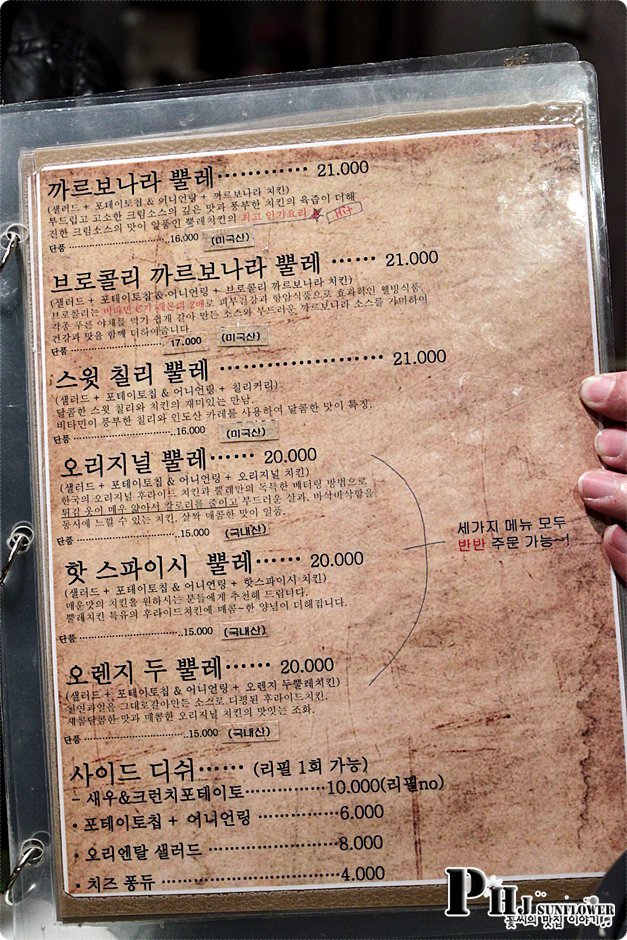 까르보나라 뿔레············ 21.000
(샐러드 + 포테이토칩 & 어니언링 + 까르보나라 치킨)
부드럽고 고소한 크림소스의 깊은 맛과 풍부한 치킨의 육즙이 더해
진한 크림소스의 맛이 일품인 뿔레치킨의 최고 인기요리
단품 ............................16.000 (미국산)
브로콜리 까르보나라 뿔레 ······ 21.000
(샐러드 + 포테이토칩 & 어니언링 + 브로콜리 까르보나라 치킨)
브로콜리는 비타민 C가 레몬의 2배로 피부건강과 항암식품으로 효과적인 웰빙식품.
각종 푸른 야채를 먹기 쉽게 갈아 만든 소스와 부드러운 까르보나라 소스를 가미하여
건강과 맛을 함께 더하여줍니다.
단품 ............................ 17.000 (미국산)
스윗 칠리 뿔레 ······················ 21.000
(샐러드 + 포테이토칩 & 어니언링 + 칠리커리)
달콤한 스윗 칠리와 치킨의 재미있는 만남.
비타민이 풍부한 칠리와 인도산 카레를 사용하여 달콤한 맛이 특징.
단품 ............................16.000 (미국산)
오리지널 뿔레······· 20.000
(샐러드 + 포테이토칩 & 어니언링 + 오리지널 치킨)
한국의 오리지널 후라이드 치킨과 뿔레만의 독특한 베터링 방법으로
튀김 옷이 매우 얇아서 칼로리를 줄이고 부드러운 살과, 바삭바삭함을
동시에 느낄 수 있는 치킨. 살짝 매콤한 맛이 일품.
단품 ............................15.000 (국내산)
세가지 메뉴 모두
반반 주문 가능~!
핫 스파이시 뿔레······ 20.000
(샐러드 + 포테이토칩 & 어니언링 + 핫스파이시 치킨)
매운맛의 치킨을 원하시는 분들에게 추천해 드립니다.
뿔레치킨 특유의 후라이드치킨에 매콤~한 양념이 더해집니다.
단품 ............................15.000 (국내산)
오렌지 두 뿔레······ 20.000
(샐러드 + 포테이토칩 & 어니언링 + 오렌지 두뿔레치킨)
천연과일을 그대로갈아만든 소스로 디핑된 후라이드치킨.
새콤달콤한 맛과 매콤한 오리지널 치킨의 맛있는 조화.
단품 ............................15.000 (국내산)
사이드 디쉬······ (리필 1회 가능)
- 새우&크런치포테이토···············10.000(리필no)
· 포테이토칩 + 어니언링 ···········6.000
· 오리엔탈 샐러드 ·················8.000
· 치즈 퐁듀 ························4.000
PHJ SUNFLOWER
꽃씨의 맛집 이야기